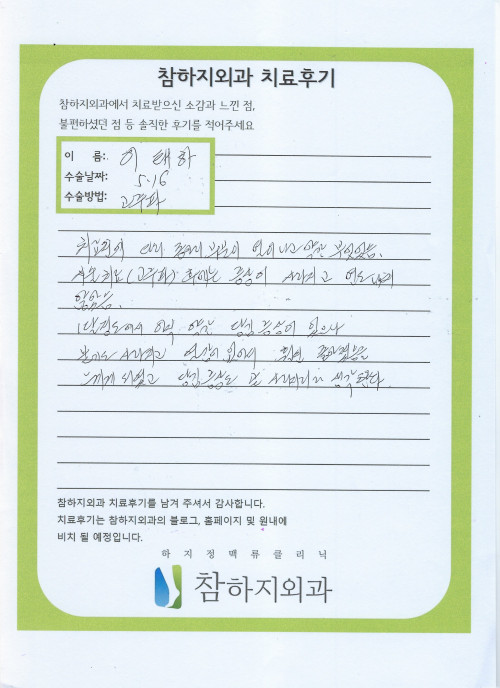 참하지외과 치료후기
참하지외과에서 치료받으신 소감과 느낀 점,
불편하셨던 점 등 솔직한 후기를 적어주세요
이 름: 이태하
수술날짜: 5.16
수술방법: 고주파
치료전에 다리 종아리 부분이 열이나고 약간 부었있음.
시술치료(고주파) 후에는 증상이 사라지고 열도 나지
않았음.
1달정도에서 아직 약간 당김증상이 있으나
붓기도 사라지고 열감이 없어서 훨씬 좋아졌음을
느끼게 되었고 당김증상도 곧 사라지리라 생각한다.
참하지외과 치료후기를 남겨 주셔서 감사합니다.
치료후기는 참하지외과의 블로그, 홈페이지 및 원내에
비치 될 예정입니다.
하지정맥류클리닉
참하지외과